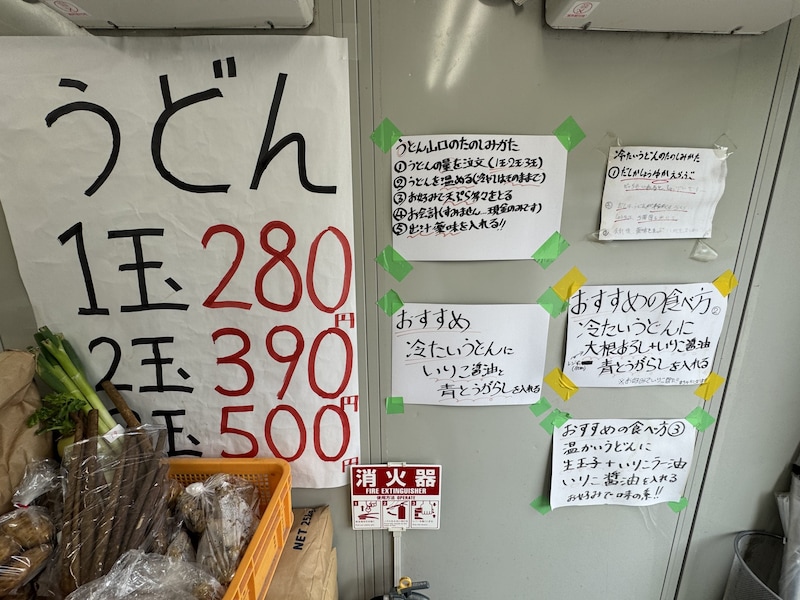 うどん
1玉 280円
2玉 390円
玉 500円
うどん山口のたのしみかた
①うどんの量を注文(1玉・2玉・3玉)
②うどんを温める(冷しはそのままで)
③お好みで天ぷら等々をとる
④お会計(すみません…現金のみです)
⑤出汁・薬味を入れる!!
冷たいうどんのたのしみかた
①だしかしょうゆかえらぶ
おすすめ
冷たいうどんに
いりこ醤油と
青とうがらしを入れる
おすすめの食べ方②
冷たいうどんに
大根おろし+いりこ醤油
青とうがらしを入れる
おすすめの食べ方③
温かいうどんに
生玉子+いりこラー油
いりこ醤油を入れる
お好みで一味の素!!
消火器
FIRE EXTINGUISHER
使用方法 OPERATE
1
2
3
NET 25